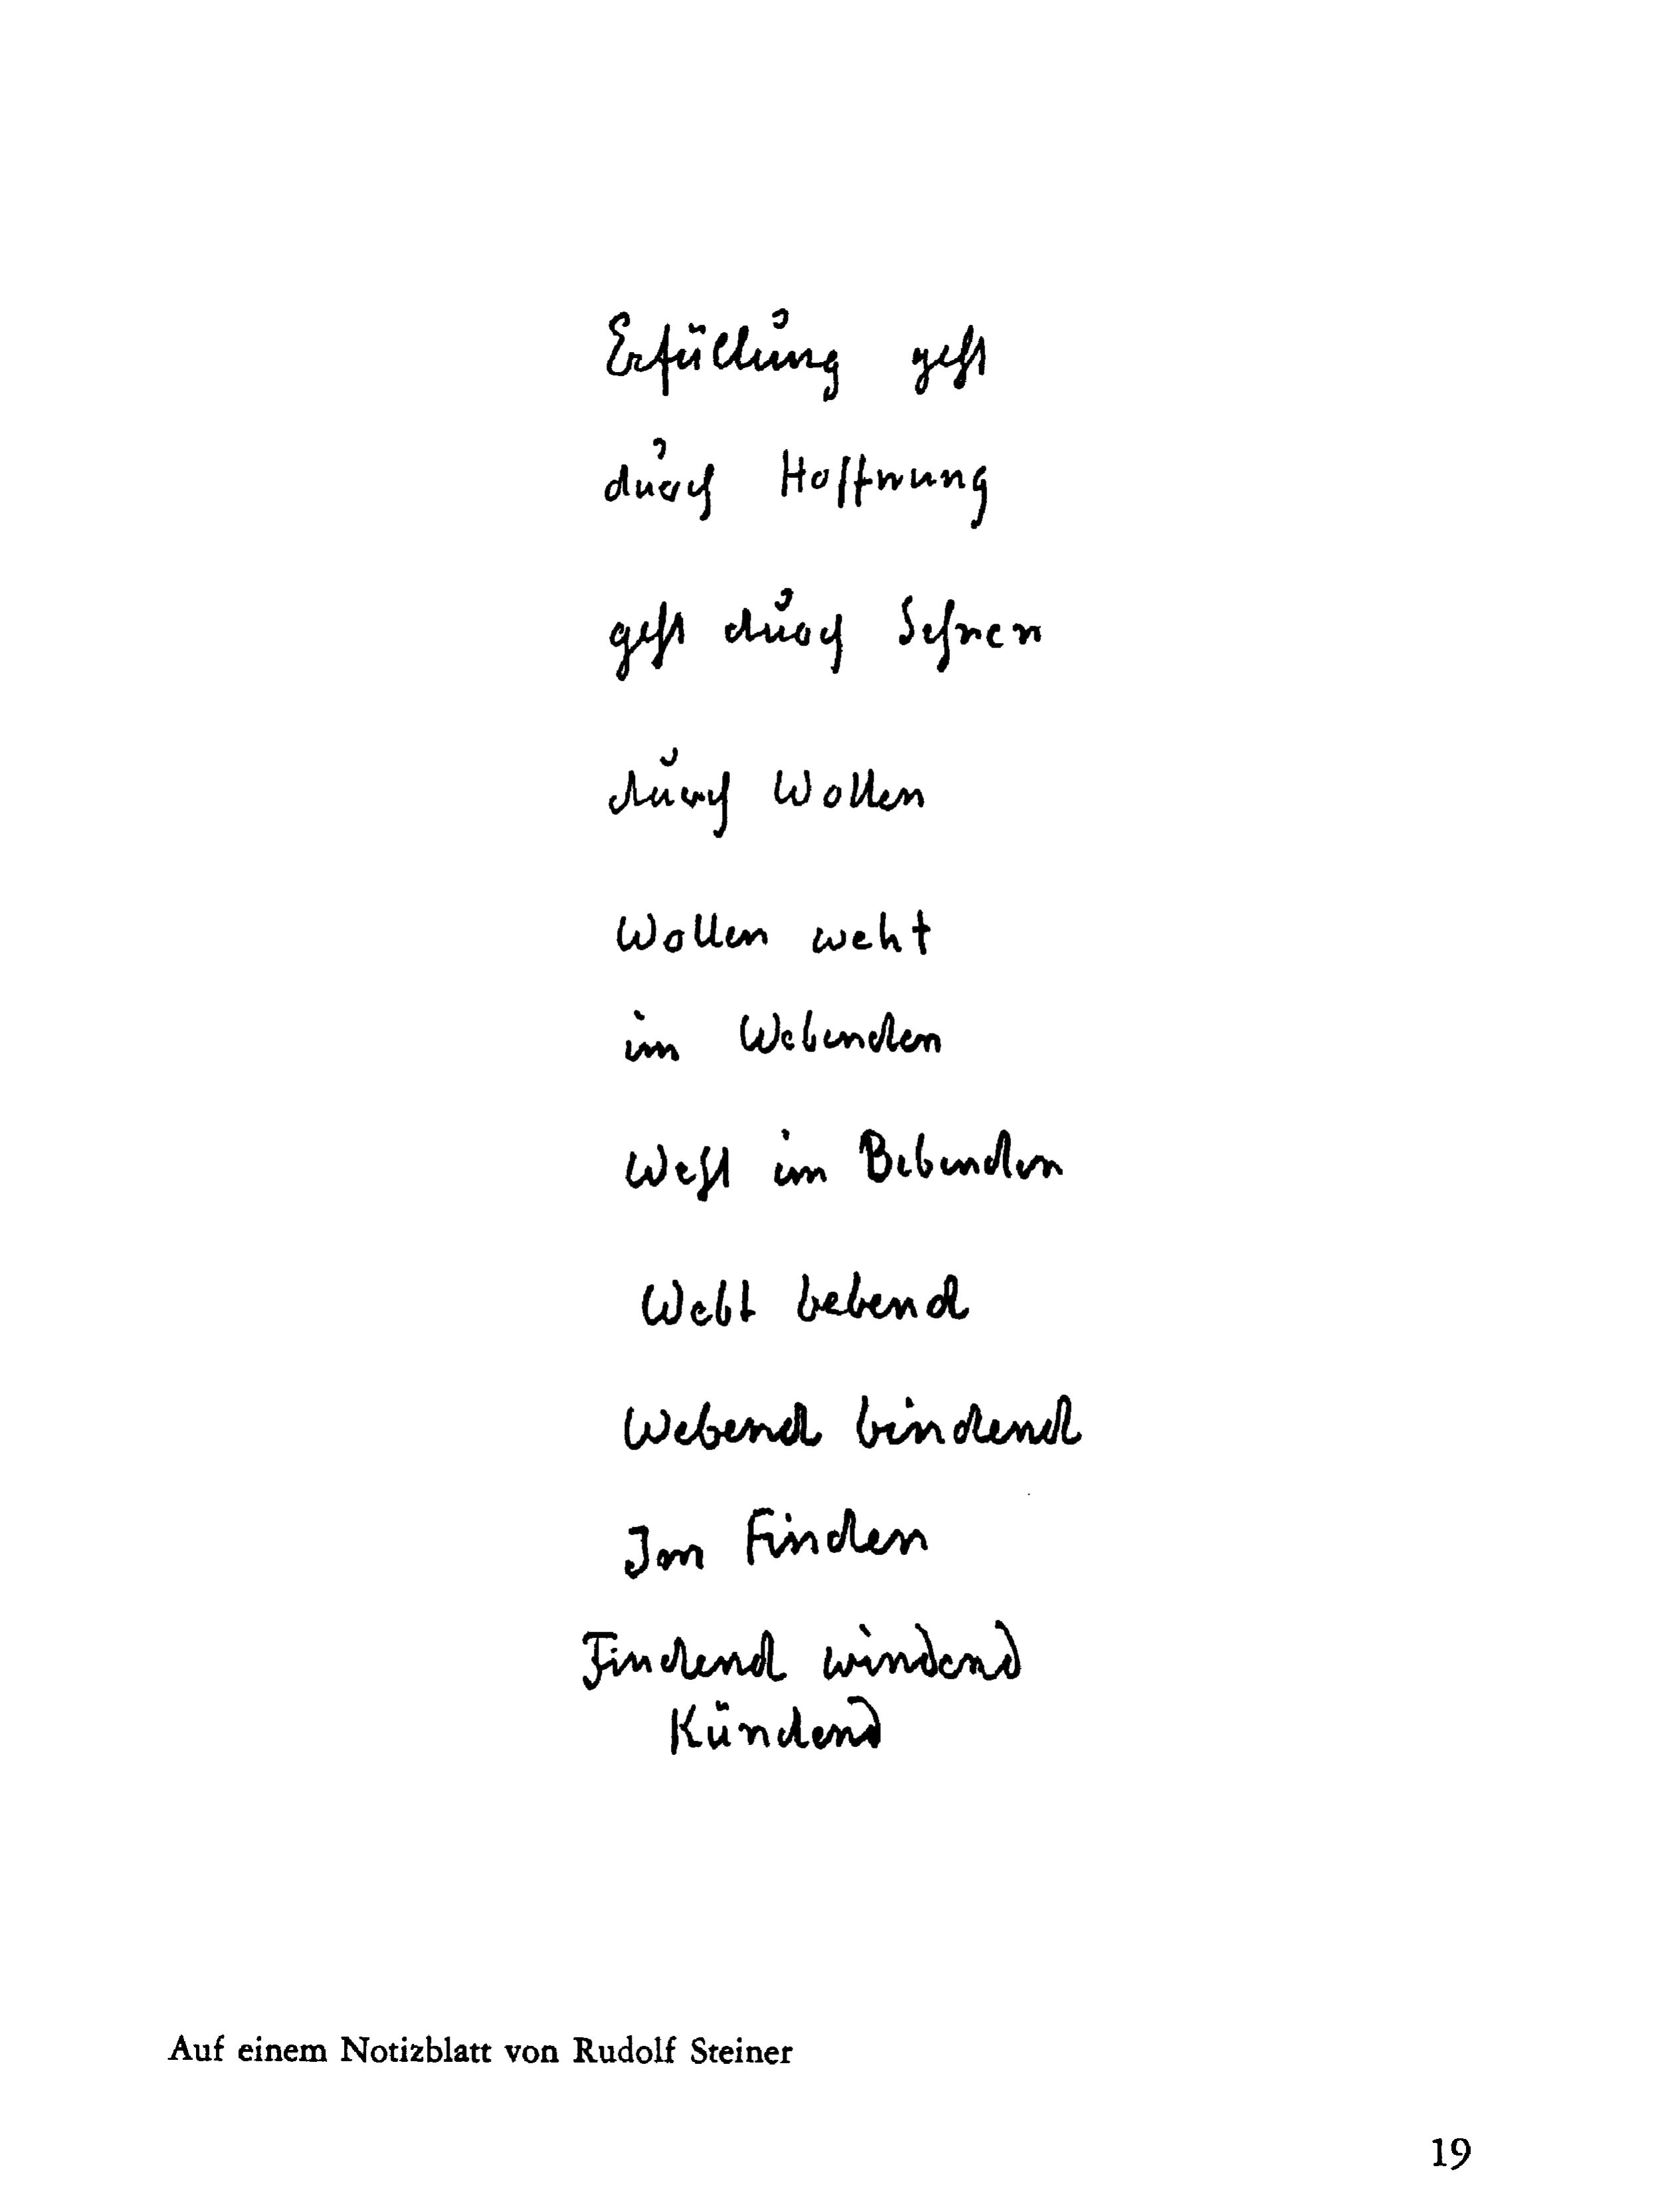 Erfüllung geht
durch Hoffnung
geht durch Sehnen
durch Wollen
Wollen weht
im Webenden
Weht im Bebenden
Webt bebend
Webend bindend
Im Finden
Findend windend
Kündend
Auf einem Notizblatt von Rudolf Steiner
19